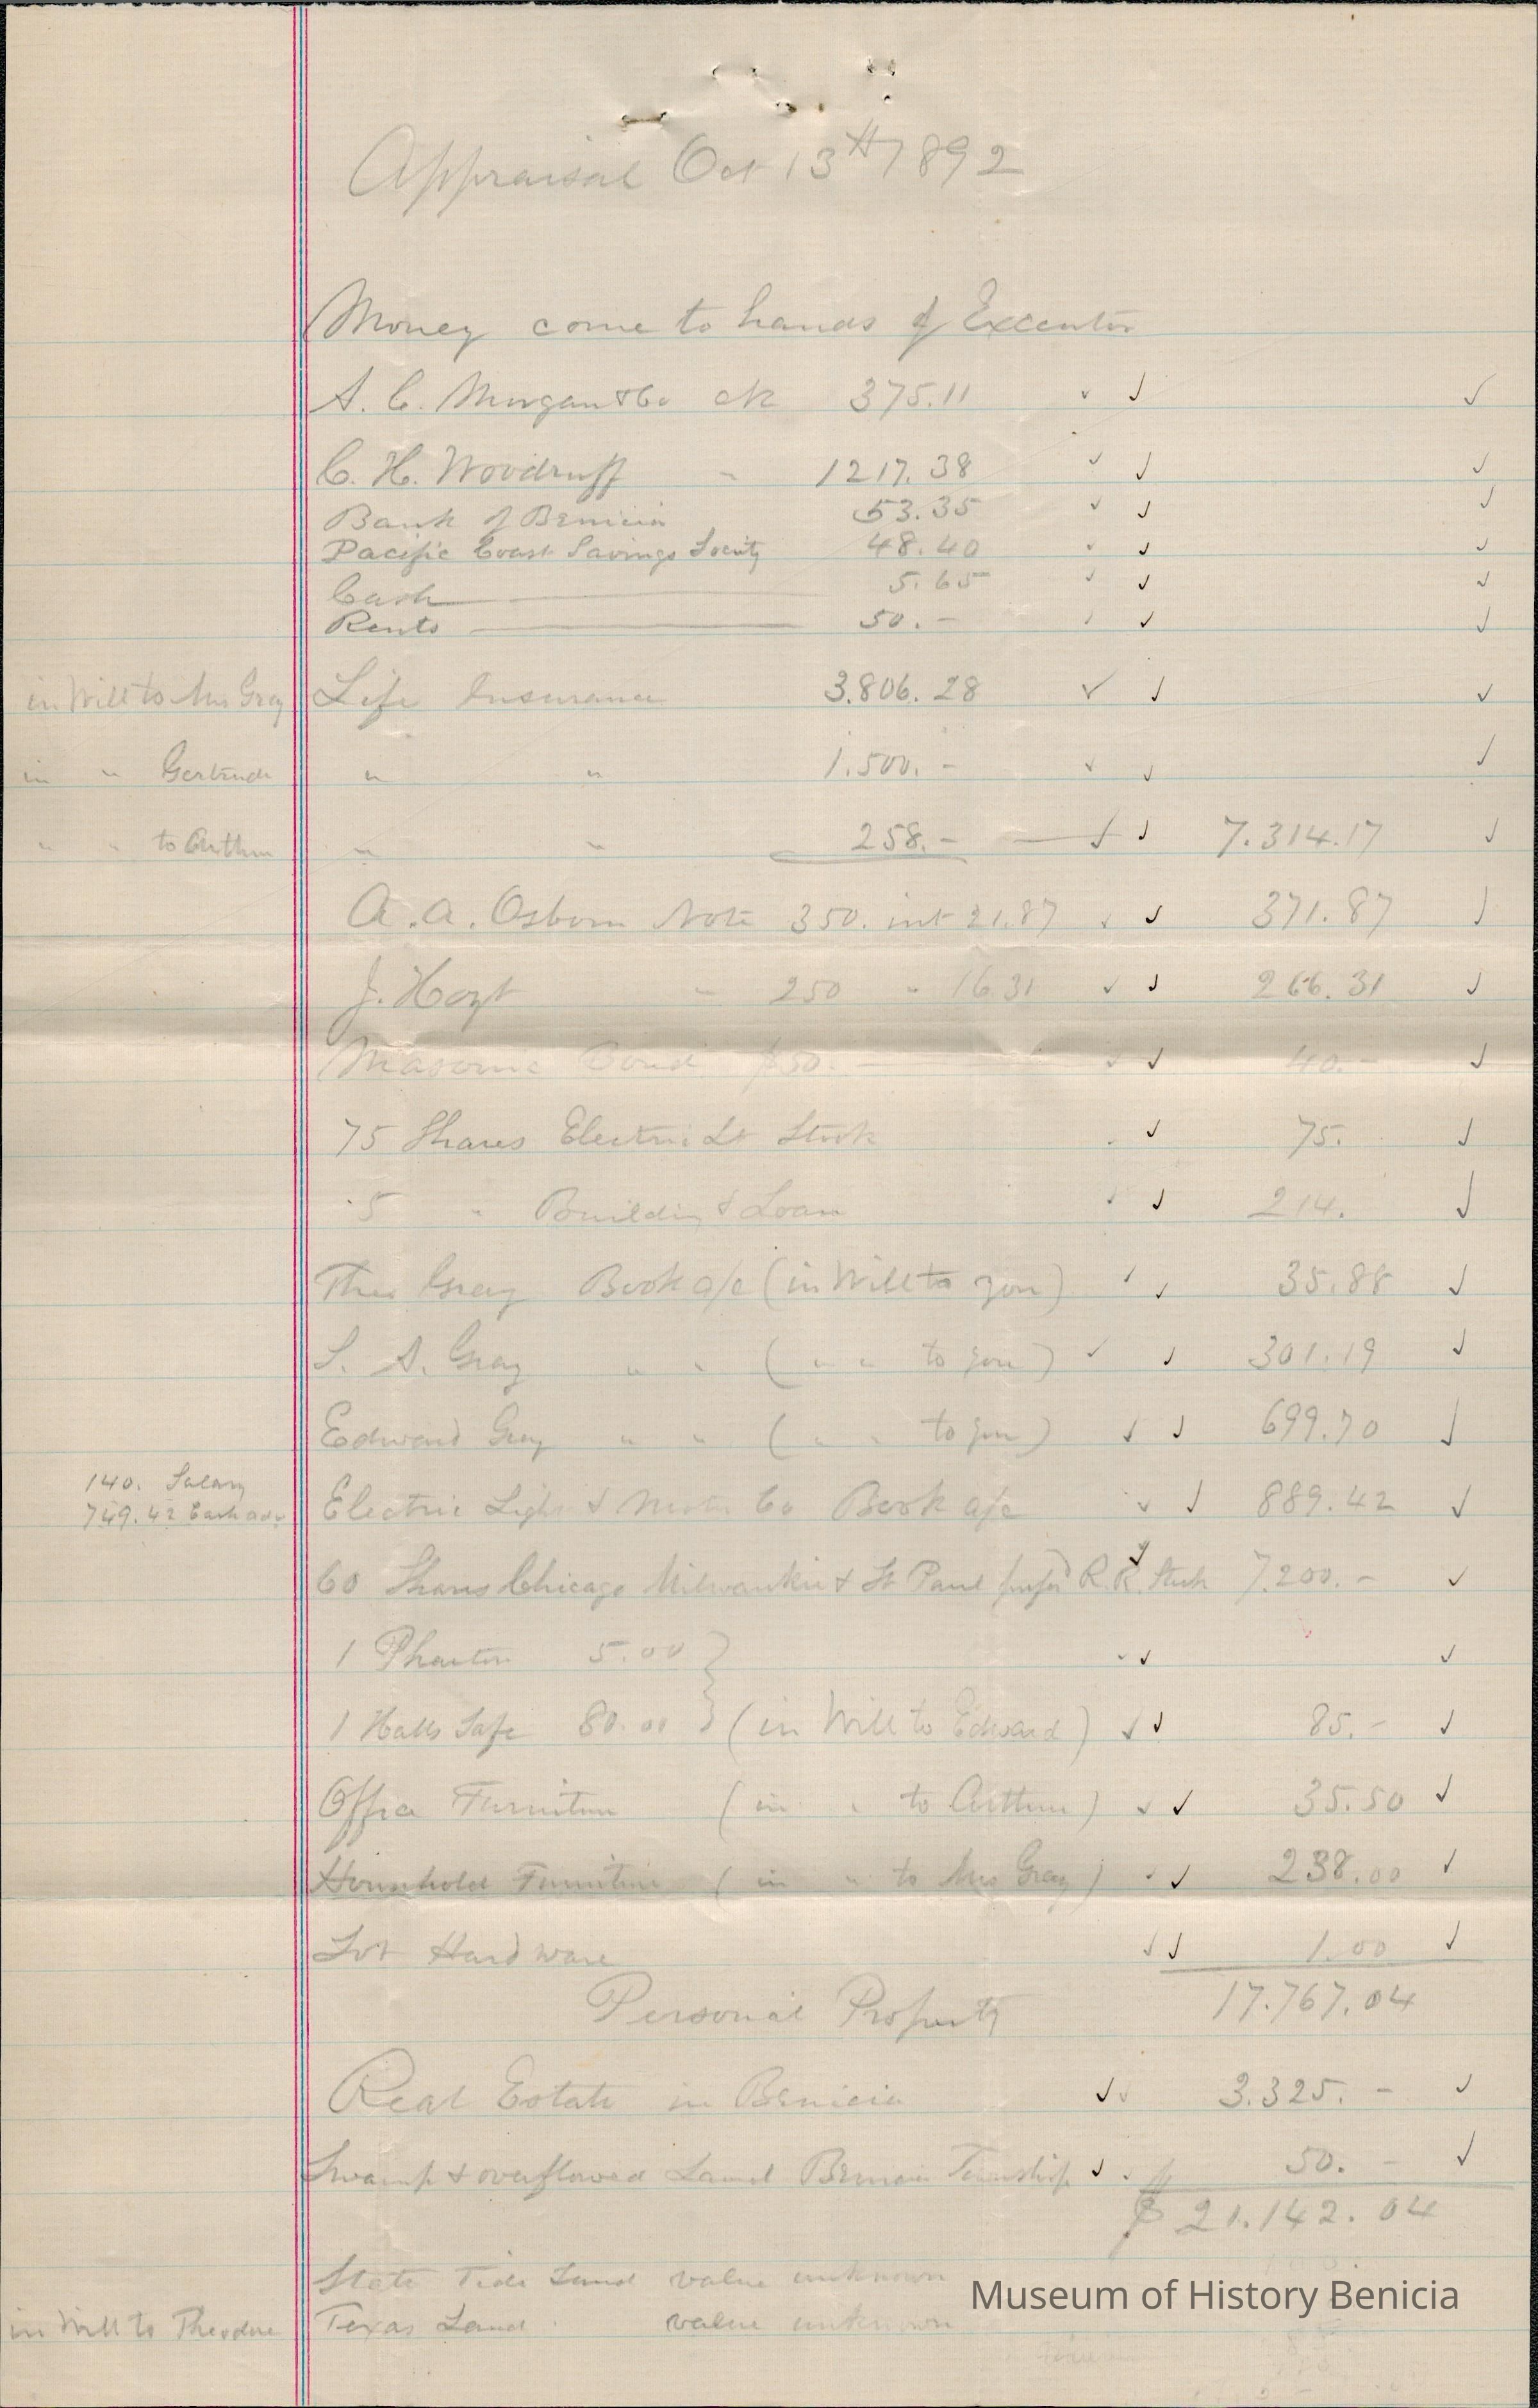 Appraisal Oct 13th 1892
Money come to hands of Executor
A. C. Morgan & Co ck 375.11 ✓ ✓ ✓
C. H. Woodruff " 1217.38 ✓ ✓ ✓
Bank of Benicia 53.35 ✓ ✓ ✓
Pacific Coast Savings Society 48.40 ✓ ✓ ✓
Cash 5.65 ✓ ✓ ✓
Rents 50.- ✓ ✓ ✓
in Will to Mrs Gray Life Insurance 3.806.28 ✓ ✓ ✓
in " Gertrude " " 1.500.- ✓ ✓ ✓
" " to Arthur " " 258.- ✓ ✓ 7.314.17 ✓
A. A. Osborn Note 350. int 21.87 ✓ ✓ 371.87 ✓
J. Hoyt " 250 " 16.31 ✓ ✓ 266.31 ✓
Masonic Bond $50.- ✓ ✓ 40.- ✓
75 Shares Electric Lt Stock ✓ 75. ✓
5 " Building & Loan ✓ ✓ 214. ✓
Theo Gray Book a/c (in Will to you) ✓ ✓ 35.88 ✓
S. A. Gray " " ( " " to you) ✓ ✓ 301.19 ✓
Edward Gray " " ( " " to you) ✓ ✓ 699.70 ✓
140. Salary
749.42 Cash adv Electric Light & Motor Co Book a/c ✓ ✓ 889.42 ✓
60 Shares Chicago Milwaukie & St Paul prefd R.R. Stock ✓ 7.200.- ✓
1 Phaeton 5.00 } ✓ ✓ ✓
1 Halls Safe 80.00 } (in Will to Edward) ✓ ✓ 85.- ✓
Office Furniture (in " to Arthur) ✓ ✓ 35.50 ✓
Household Furniture (in " to Mrs Gray) ✓ ✓ 238.00 ✓
Lot Hardware ✓ ✓ 1.00 ✓
Personal Property 17.767.04
Real Estate in Benicia ✓ ✓ 3.325.- ✓
Swamp & overflowed Land Benicia Township ✓ ✓ 50.- ✓
$ 21.142.04
State Tide Land value unknown
in Will to Theodore Texas Land value unknown
Museum of History Benicia